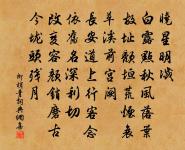 曉星明滅
白露點秋風落葉
故址頹垣荒煙衰
草溪前宮闕
長安道上行客念
依舊名深利切
改變容顏銷磨古
今隴頭殘月